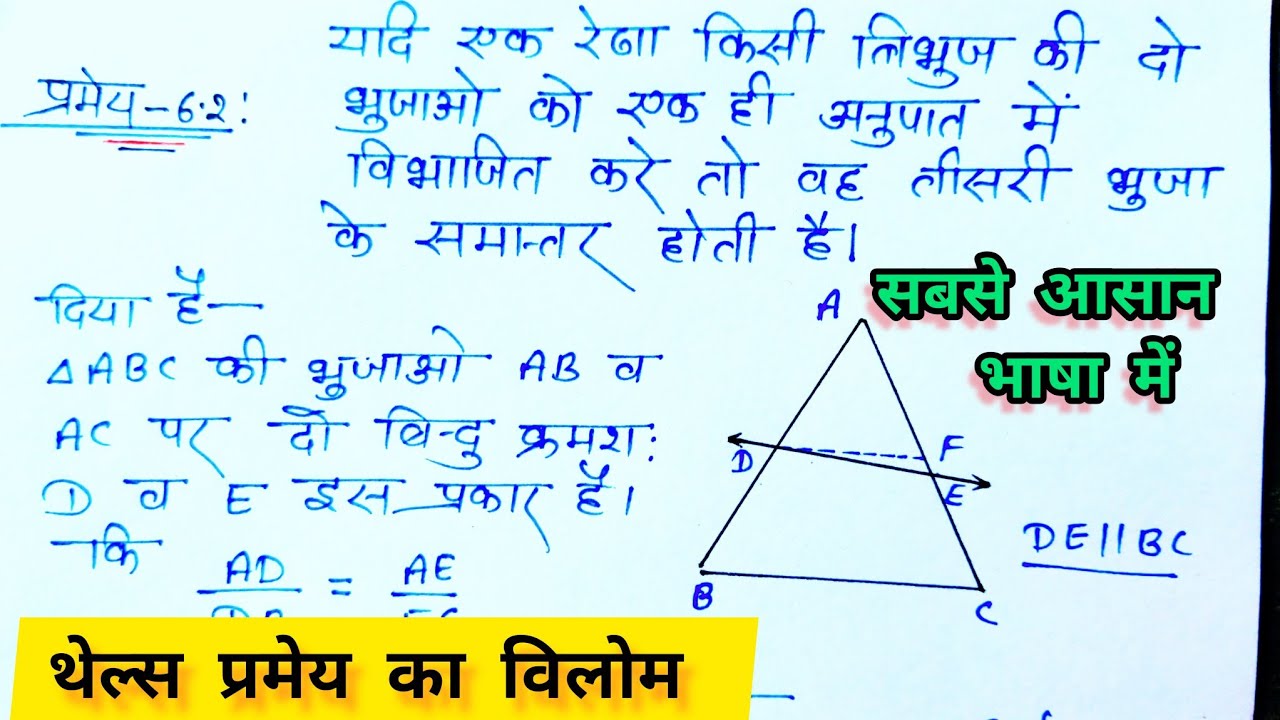 यदि एक रेखा किसी त्रिभुज की दो
प्रमेय-6.2:
भुजाओ को एक ही अनुपात में
विभाजित करे तो वह तीसरी भुजा
के समान्तर होती है।
सबसे आसान
भाषा में
दिया है—
△ABC की भुजाओ AB व
AC पर दो बिन्दु क्रमश:
D व E इस प्रकार है।
कि
AD = AE
A
D
F
E
B
C
DE||BC
थेल्स प्रमेय का विलोम